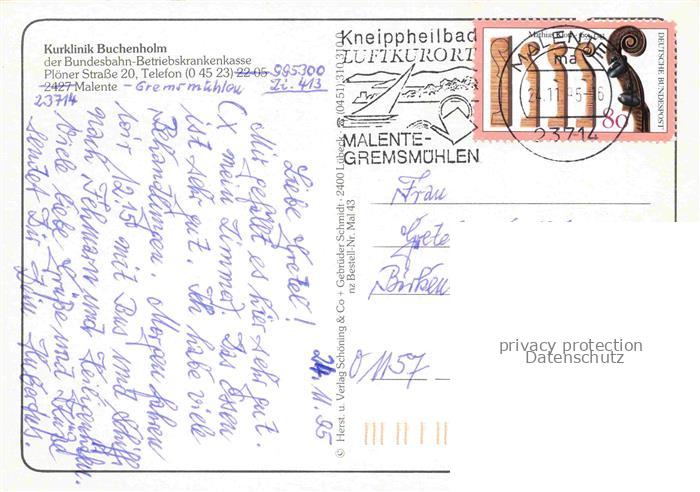 Kurklinik Buchenholm
der Bundesbahn-Betriebskrankenkasse
Plöner Straße 20, Telefon (0 45 23) 22 05 985300
2427 Malente - Gremsmühlen Zi. 413
23714
24.11.95
Liebe Gretel!
Mir gefällt es hier sehr gut.
(mein Zimmer) Das Essen
ist sehr gut. Ich habe viele
Behandlungen. Morgen fahren
wir 12.15 mit Bus und Schiff
nach Fehmarn und Heiligenhafen.
Viele liebe Grüße und
sendet Dir Deine
© Herst. u. Verlag Schöning & Co + Gebrüder Schmidt · 2400 Lübeck · ☎ (04 51) 310 310
nz Bestell-Nr. Mal 43
Kneippheilbad
LUFTKURORT
MALENTE-
GREMSMÜHLEN
MALENTE
ma
24.11.95-16
23714
DEUTSCHE BUNDESPOST
80
Frau
Grete
Birken
O 1157
privacy protection
Datenschutz